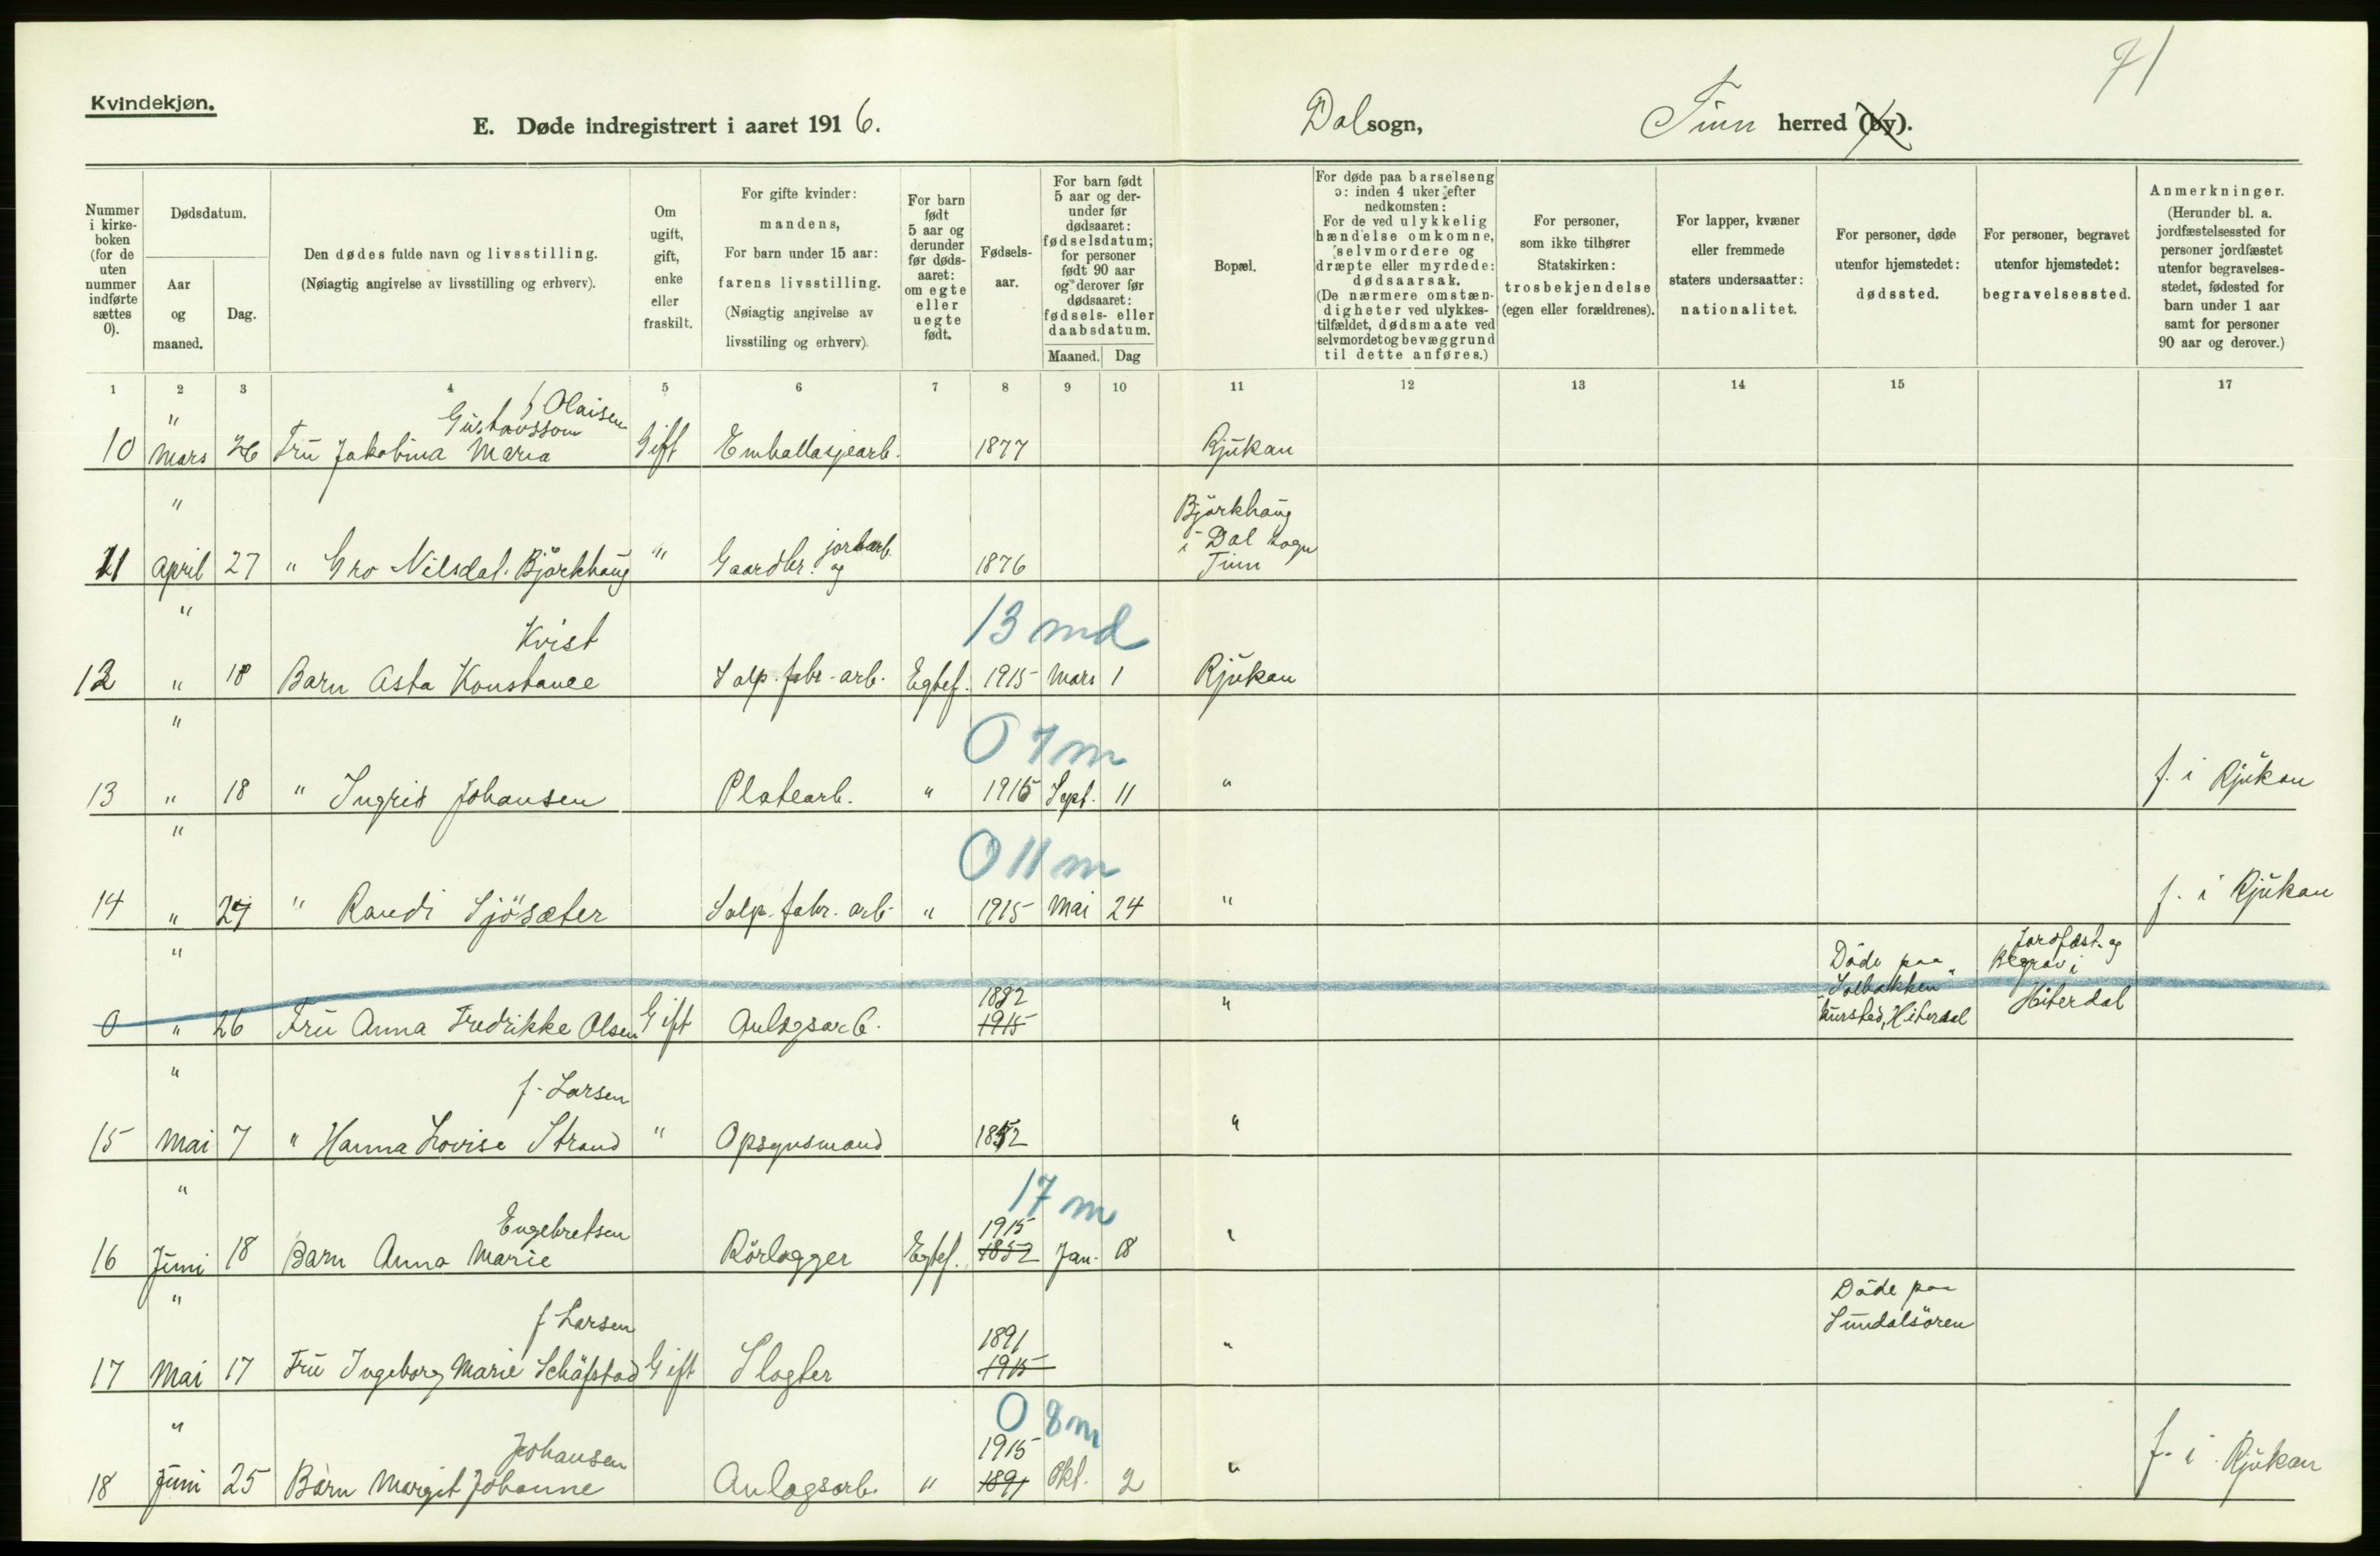 71
Kvindekjøn.
E. Døde indregistrert i aaret 1916.
Dal sogn,
Tinn herred (by).
Nummer i kirke-boken (for de uten nummer indførte sættes 0).
Dødsdatum.
Aar og maaned.
Dag.
Den dødes fulde navn og livsstilling.
(Nøiagtig angivelse av livsstilling og erhverv).
Om ugift, gift, enke eller fraskilt.
For gifte kvinder: mandens,
For barn under 15 aar: farens livsstilling.
(Nøiagtig angivelse av livsstiling og erhverv).
For barn født 5 aar og derunder før døds-aaret: om egte eller uegte født.
Fødsels-aar.
For barn født 5 aar og der-under før dødsaaret: fødselsdatum; for personer født 90 aar og derover før dødsaaret: fødsels- eller daabsdatum.
Maaned. Dag
Bopæl.
For døde paa barselseng ɔ: inden 4 uker efter nedkomsten:
For de ved ulykkelig hændelse omkomne, selvmordere og dræpte eller myrdede: dødsaarsak.
(De nærmere omstæn-digheter ved ulykkes-tilfældet, dødsmaate ved selvmordet og bevæggrund til dette anføres.)
For personer, som ikke tilhører Statskirken: trosbekjendelse (egen eller forældrenes).
For lapper, kvæner eller fremmede staters undersaatter: nationalitet.
For personer, døde utenfor hjemstedet: dødssted.
For personer, begravet utenfor hjemstedet: begravelsessted.
Anmerkninger.
(Herunder bl. a. jordfæstelsessted for personer jordfæstet utenfor begravelses-stedet, fødested for barn under 1 aar samt for personer 90 aar og derover.)
1 2 3 4 5 6 7 8 9 10 11 12 13 14 15 17
" f Olaisen
Gustavsson
10 Mars 26 Frü Jakobina Maria Gift Emballasjearb. 1877 Rjükan
" Björkhaug
jordarb. i Dal sogn
11 April 27 " Gro Nilsdat. Björkhaug " Gaardbr. og 1876 Tinn
" 13 md
Kvist
12 " 18 Barn Asta Konstance Salp. fabr. arb. Egtef. 1915 Mars 1 Rjükan
" 0 7 m
13 " 18 " Ingrid Johansen Platearb. " 1915 Sept. 11 " f. i Rjükan
" 0 11 m
14 " 27 " Randi Sjösæter Salp. fabr. arb. " 1915 Mai 24 " f. i Rjükan
" Döde paa Jordfæst. og
1882 " "Solbakken" Begrav i
0 " 26 Frü Anna Fredrikke Olsen Gift Anlægsarb. 1915 kursted, Hiterdal Hiterdal
" f. Larsen
15 Mai 7 " Hanna Lovise Strand " Opsynsmand 1852 "
" 17 m
Engebretsen 1915
16 Juni 18 Barn Anna Marie Rörlægger Egtef. 1852 Jan. 18 "
" Döde paa
f Larsen 1891 Sundalsören
17 Mai 17 Frü Ingeborg Marie Schäfstad Gift Slagter 1915 "
" 0 8 m
Johansen 1915
18 Juni 25 Barn Margit Johanne Anlægsarb. " 1891 Okt. 2 " f. i Rjükan